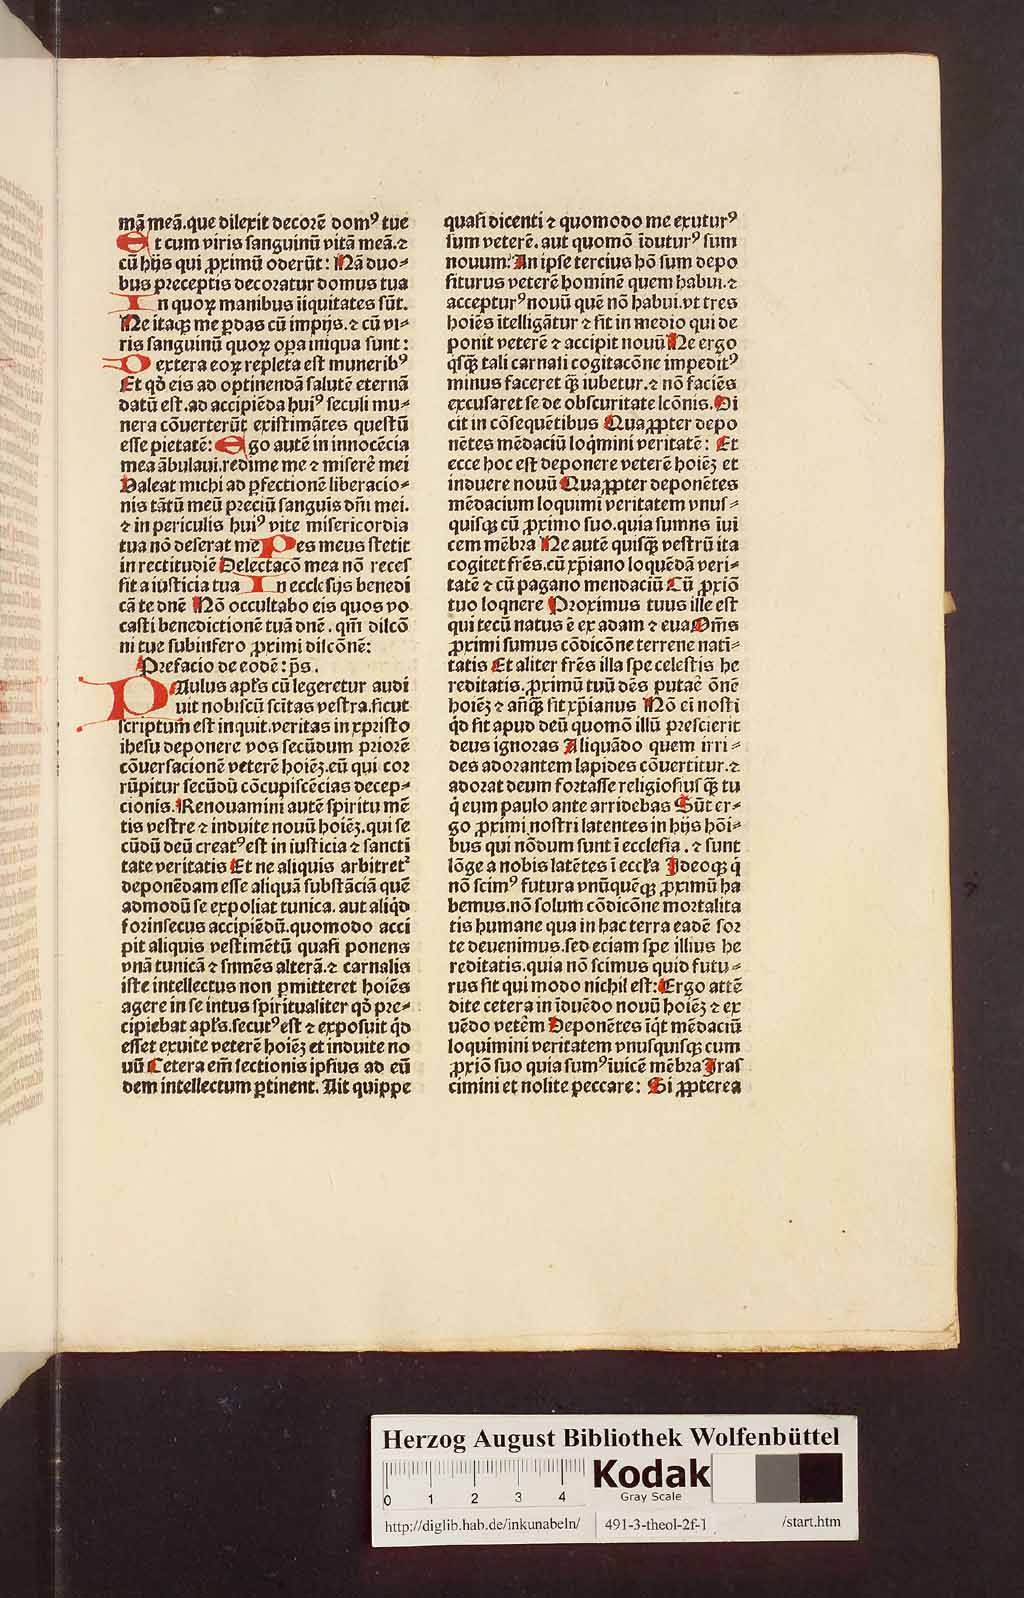 mā meā. que dilexit decorē domꝰ tue
Et cum viris sanguinū vitā meā. ⁊
cū hijs qui ꝓximū oderūt: Nā duo⸗
bus preceptis decoratur domus tua
In quoꝝ manibus iīquitates sūt.
Ne itaqꝫ me ꝑdas cū impijs. ⁊ cū vi⸗
ris sanguinū quoꝝ oꝑa iniqua sunt:
Dextera eoꝝ repleta est muneribꝰ
Et qđ eis ad optinendā salutē eternā
datū est. ad accipiēda huiꝰ seculi mu⸗
nera cōverterūt existimātes questū
esse pietatē: Ego autē in innocēcia
mea ābulaui. redime me ⁊ miserē mei
Valeat michi ad ꝑfectionē liberacio⸗
nis tātū meū preciū sanguīs dn̄i mei.
⁊ in periculis huiꝰ vite misericordia
tua nō deserat me Pes meus stetit
in rectitudiē Delectacō mea nō reces
sit a iusticia tua In ecclesijs benedi
cā te dnē Nō occultabo eis quos vo
casti benedictionē tuā dnē. qm̄ dilcō
ni tue subinfero ꝓximi dilcōnē:
Prefacio de eodē: p̄s.
PAulus apl's cū legeretur audi
uit nobiscū scītas vestra. sicut
scriptum est inquit. veritas in xpristo
ihesu deponere vos secūdum priorē
cōversacionē veterē hoiēꝫ. eū qui cor
rūpitur secūdū cōcupiscēcias decep⸗
cionis. Renouamini autē spiritu mē
tis vestre ⁊ induite nouū hoiēꝫ. qui se
cūdū deū creatꝰ est in iusticia ⁊ sancti
tate veritatis Et ne aliquis arbitretꝰ
deponēdam esse aliquā substāciā quē
admodū se expoliat tunica. aut aliqđ
forinsecus accipiēdū. quomodo acci
pit aliquis vestimētū quasi ponens
vnā tunicā ⁊ sumēs alterā. ⁊ carnalis
iste intellectus non ꝑmitteret hoiēs
agere in se intus spiritualiter qđ pre⸗
cipiebat apl's. secutꝰ est ⁊ exposuit qđ
esset exuite veterē hoiēꝫ et induite no
uū Cetera em̄ lectionis ipsius ad eū
dem intellectum ꝑtinent. Ait quippe
quasi dicenti ⁊ quomodo me exuturꝰ
sum veterē. aut quomō īduturꝰ sum
nouum? An ipse tercius hō sum depo
siturus veterē hominē quem habui. ⁊
accepturꝰ nouū quē nō habui. vt tres
hoiēs ītelligātur ⁊ sit in medio qui de
ponit veterē ⁊ accipit nouū Ne ergo
qsqꝫ tali carnali cogitacōne impeditꝰ
minus faceret qꝫ iubetur. ⁊ nō faciēs
excusaret se de obscuritate lcōnis. Di
cit in cōsequētibus Quaꝓpter depo
nētes mēdaciū loqmini veritatē: Et
ecce hoc est deponere veterē hoiēꝫ et
induere nouū Quaꝓpter deponētes
mēdacium loquimi veritatem vnus⸗
quisqꝫ cū ꝓximo suo. quia sumus īui
cem mēbra Ne autē quisqꝫ vestrū ita
cogitet frēs. cū xp̄iano loquēdā veri⸗
tatē ⁊ cū pagano mendaciū Cū ꝓxiō
tuo loquere Proximus tuus ille est
qui tecū natus ē ex adam ⁊ eua Om̄s
ꝓximi sumus cōdicōne terrene nati⸗
tatis Et aliter frēs illa spe celestis he
reditatis. ꝓximū tuū dēs putaē ōnē
hoiēꝫ ⁊ anqꝫ sit xp̄ianus Nō ei nosti
qđ sit apud deū quomō illū prescierit
deus ignoras Aliquādo quem irri⸗
des adorantem lapides cōuertitur. ⁊
adorat deum fortasse religiosius qꝫ tu
q eum paulo ante arridebas Sūt er⸗
go ꝓximi nostri latentes in hijs hōi⸗
bus qui nōdum sunt ī ecclesia. ⁊ sunt
lōge a nobis latētes ī eccl'a Ideoqꝫ q
nō scimꝰ futura vnūquēqꝫ ꝓximū ha
bemus. nō solum cōdicōne mortalita
tis humane qua in hac terra eadē sor
te deuenimus. sed eciam spe illius he
reditatis. quia nō scimus quid futu⸗
rus sit qui modo nichil est: Ergo attē
dite cetera in īduēdo nouū hoiēꝫ ⁊ ex
uēdo vetēm Deponētes īqt mēdaciū
loquimini veritatem vnusquisqꝫ cum
ꝓxiō suo quia sumꝰ īuicē mēbra Iras
cimini et nolite peccare: Si ꝓpterea
Herzog August Bibliothek Wolfenbüttel
0 1 2 3 4
Kodak
Gray Scale
http://diglib.hab.de/inkunabeln/ 491-3-theol-2f-1 /start.htm